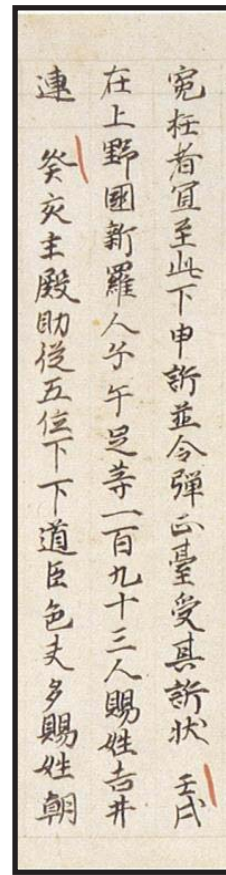 冤枉者宜至此下申訴並令弾正臺受其訴状 壬戌
在上野國新羅人子午足等一百九十三人賜姓吉井
連 癸亥主殿助従五位下下道臣色夫多賜姓朝